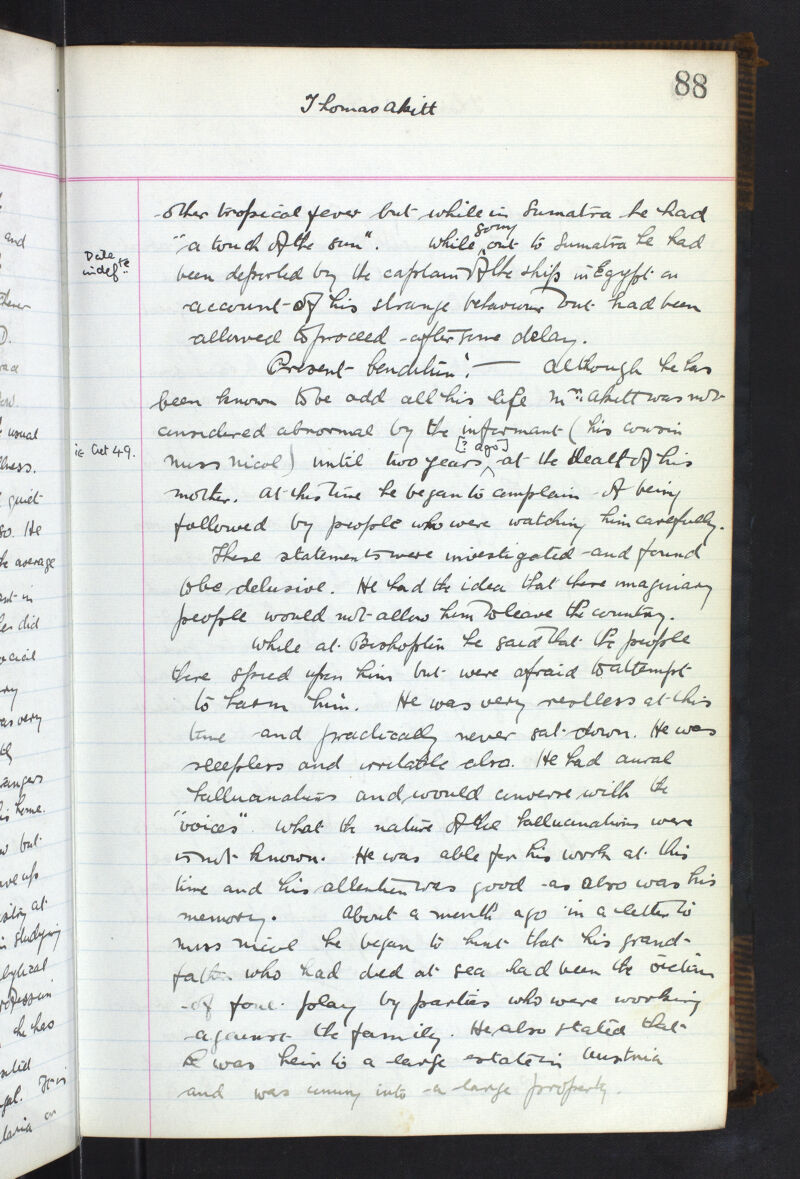 88
Thomas Akitt
other tropical fever but while in Sumatra he had
"a touch of the sun". While going out to Sumatra he had
Date indef.te
been deported by the captain of the ship in Egypt on
account of his strange behaviour but had been
allowed to proceed after some delay.
Present Condition":— Although he has
been known to be odd all his life Mr. Akitt was not
considered abnormal by the informant (his cousin
ie aet 49.
Miss Nicol) until two years [? ago] at the death of his
mother. At this time he began to complain of being
followed by people who were watching him carefully.
These statements were investigated and found
to be delusive. He had the idea that these imaginary
people would not allow him to leave the country.
While at Bishopton he said that the people
there spied upon him but were afraid to attempt
to harm him. He was very restless at this
time and practically never sat down. He was
sleepless and irritable also. He had aural
hallucinations and would converse with the
"voices". What the nature of the hallucinations were
is not known. He was able for his work at this
time and his attention was good as also was his
memory. About a month ago in a letter to
Miss Nicol he began to hint that his grand-
father who had died at sea had been the victim
of foul play by parties who were working
against the family. He also stated that
he was heir to a large estate in Austria
and was coming into a large property.
and
usual
quiet
so. He
average
did
was very
rangers
his home.
but
studying
he has
It is